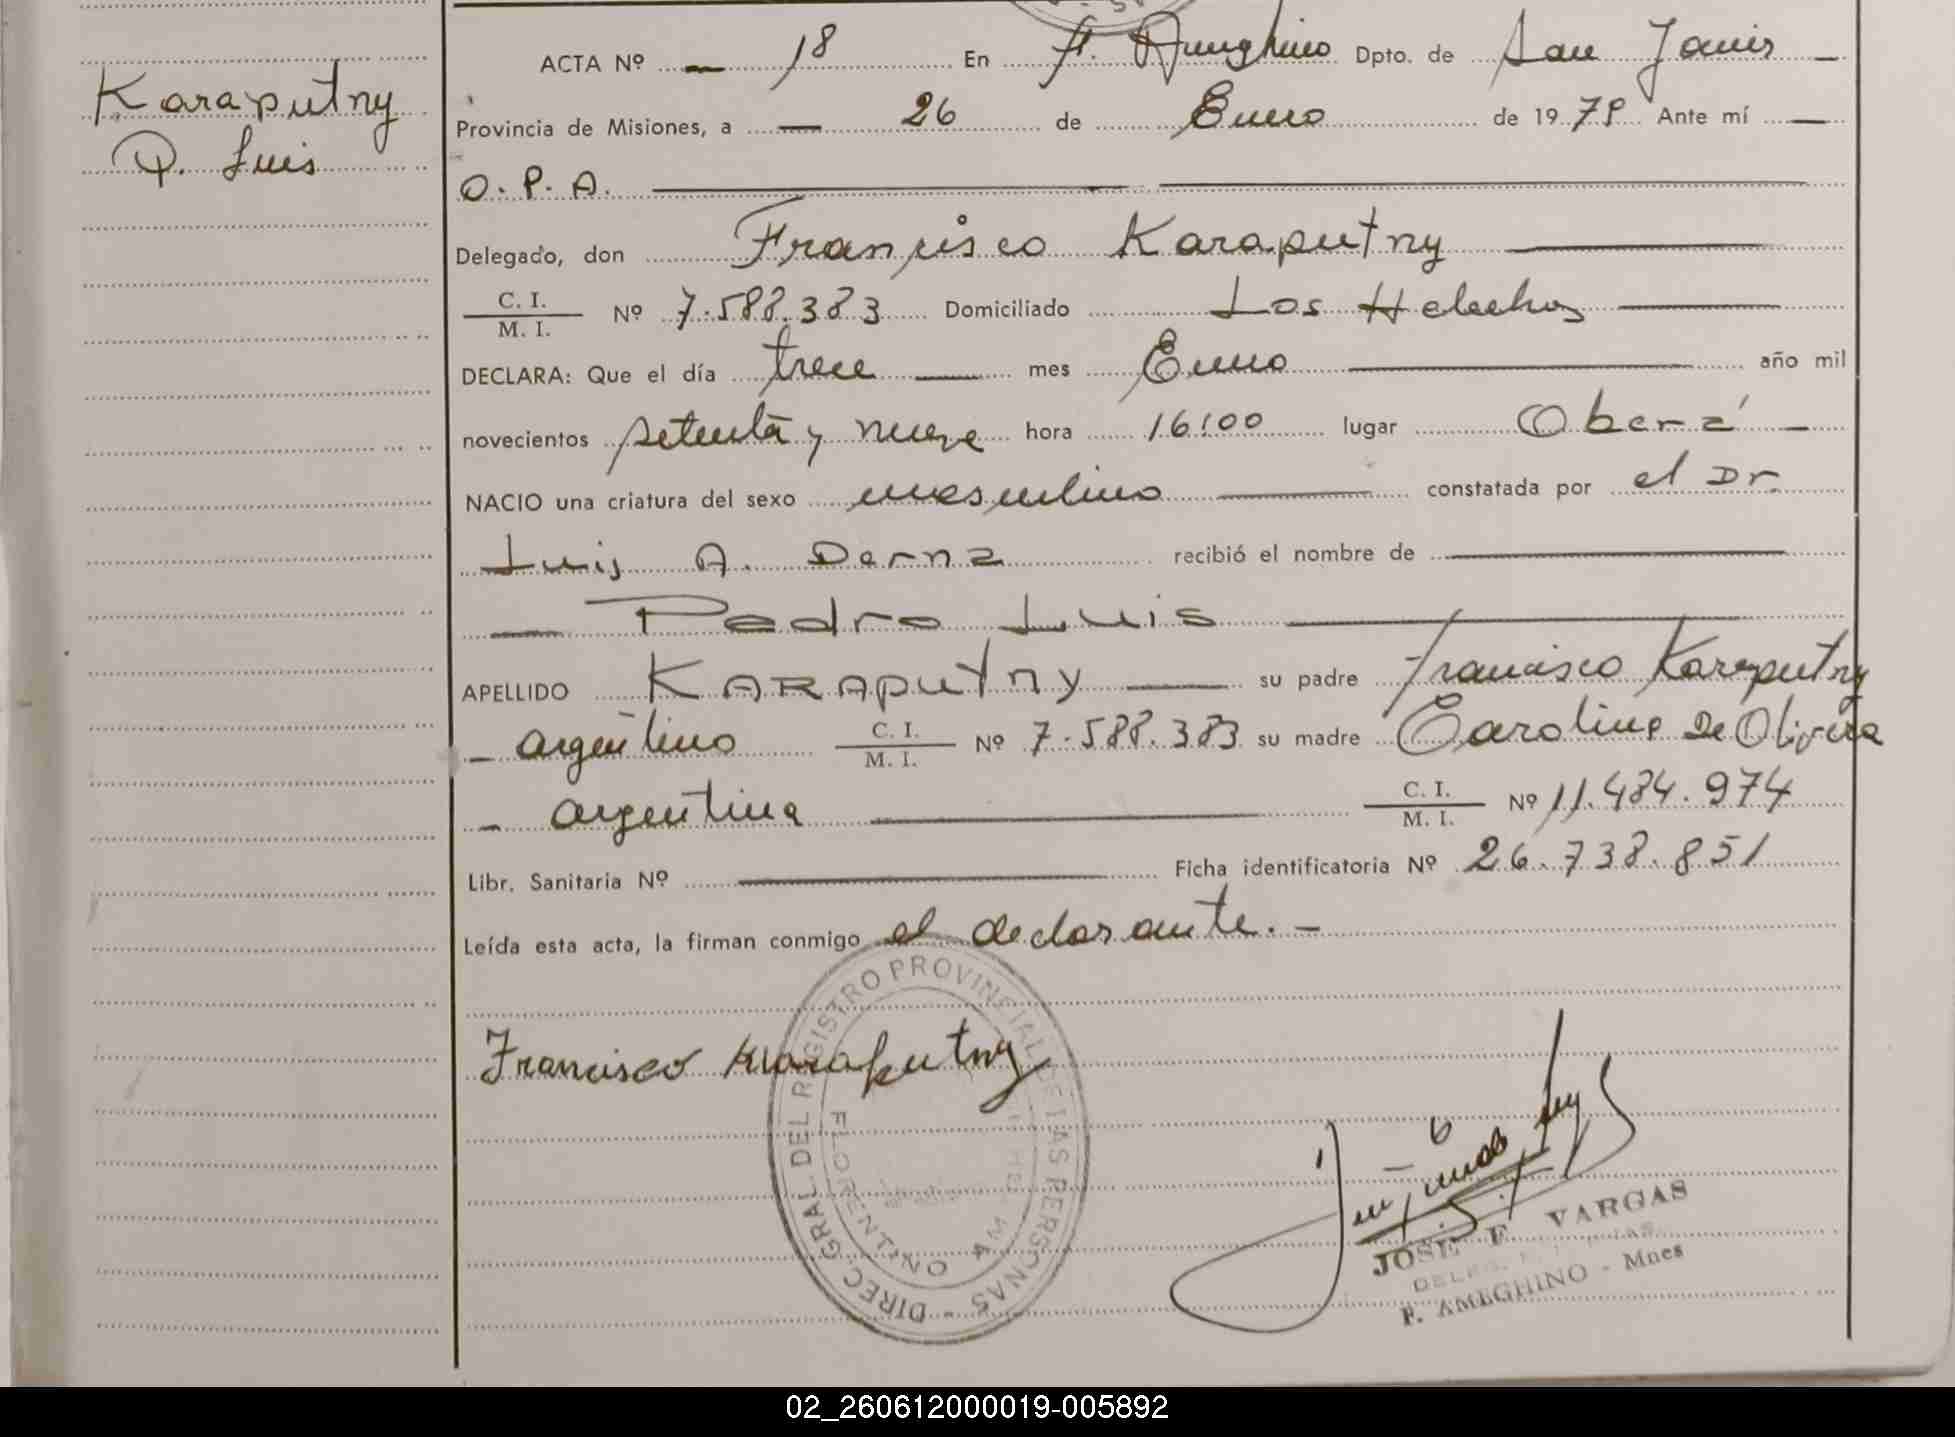 Karaputny
P. Luis
ACTA Nº 18 En F. Ameghino Dpto. de San Javier
Provincia de Misiones, a 26 de Enero de 1979 Ante mí
O. P. A.
Delegado, don Francisco Karaputny
C. I.
M. I. Nº 7.588.383 Domiciliado Los Helechos
DECLARA: Que el día trece mes Enero año mil
novecientos setenta y nueve hora 16:00 lugar Oberá
NACIO una criatura del sexo masculino constatada por el Dr.
Luis A. Derna recibió el nombre de
Pedro Luis
APELLIDO KARAPUTNY su padre Francisco Karaputny
argentino C. I.
M. I. Nº 7.588.383 su madre Carolina De Olivera
argentina C. I.
M. I. Nº 11.484.974
Libr. Sanitaria Nº Ficha identificatoria Nº 26.738.851
Leída esta acta, la firman conmigo el declarante.-
Francisco Karaputny
DIREC. GRAL DEL REGISTRO PROVINCIAL DE LAS PERSONAS
FLORENTINO
JOSE F. VARGAS
F. AMEGHINO - Mnes
02_260612000019-005892